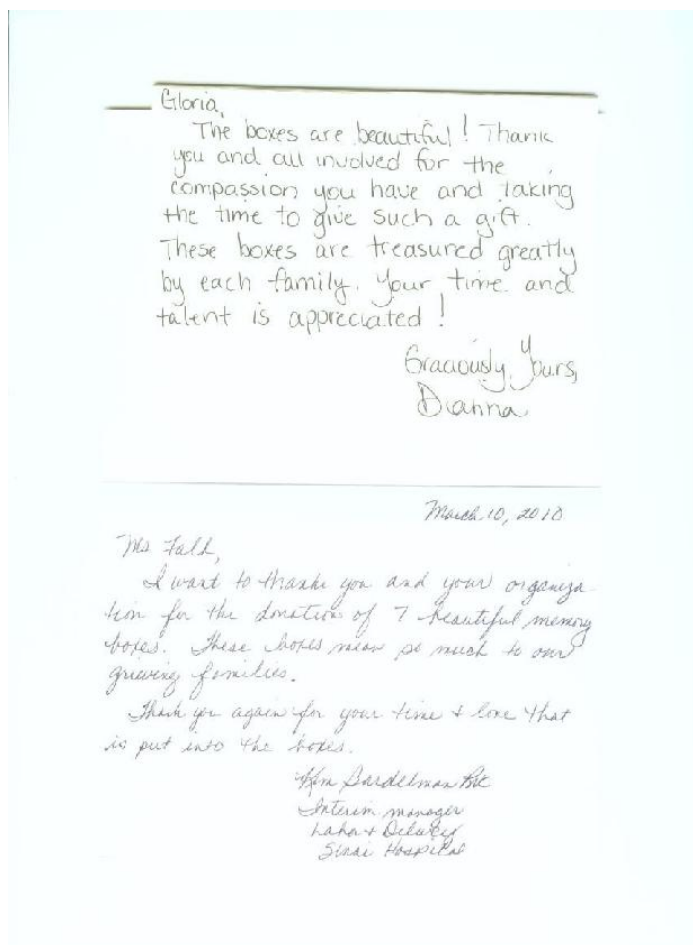 Gloria,
The boxes are beautiful! Thank
you and all involved for the
compassion you have and taking
the time to give such a gift.
These boxes are treasured greatly
by each family. Your time and
talent is appreciated!
Graciously Yours,
Dianna
March 10, 2010
Ms.
I want to thank you and your organiza
tion for the donation of 7 beautiful memory
boxes. These boxes mean so much to our
grieving families.
Thank you again for your time & love that
is put into the boxes.
Kim
Interim manager
Labor & Delivery
Sinai Hospital